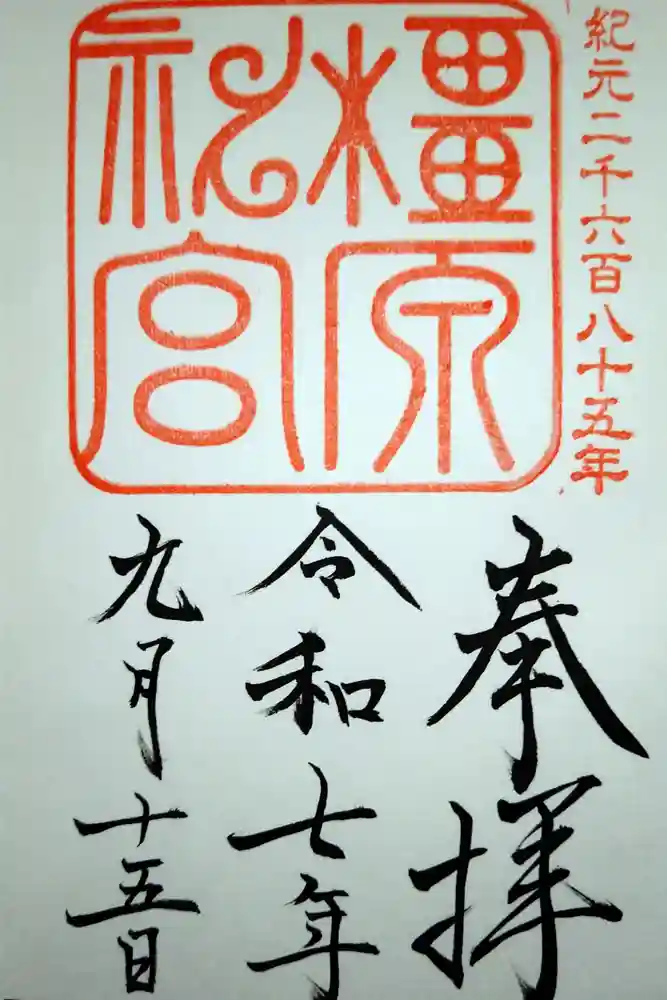 紀元二千六百八十五年
橿原
神宮
奉拝
令和七年
九月十五日